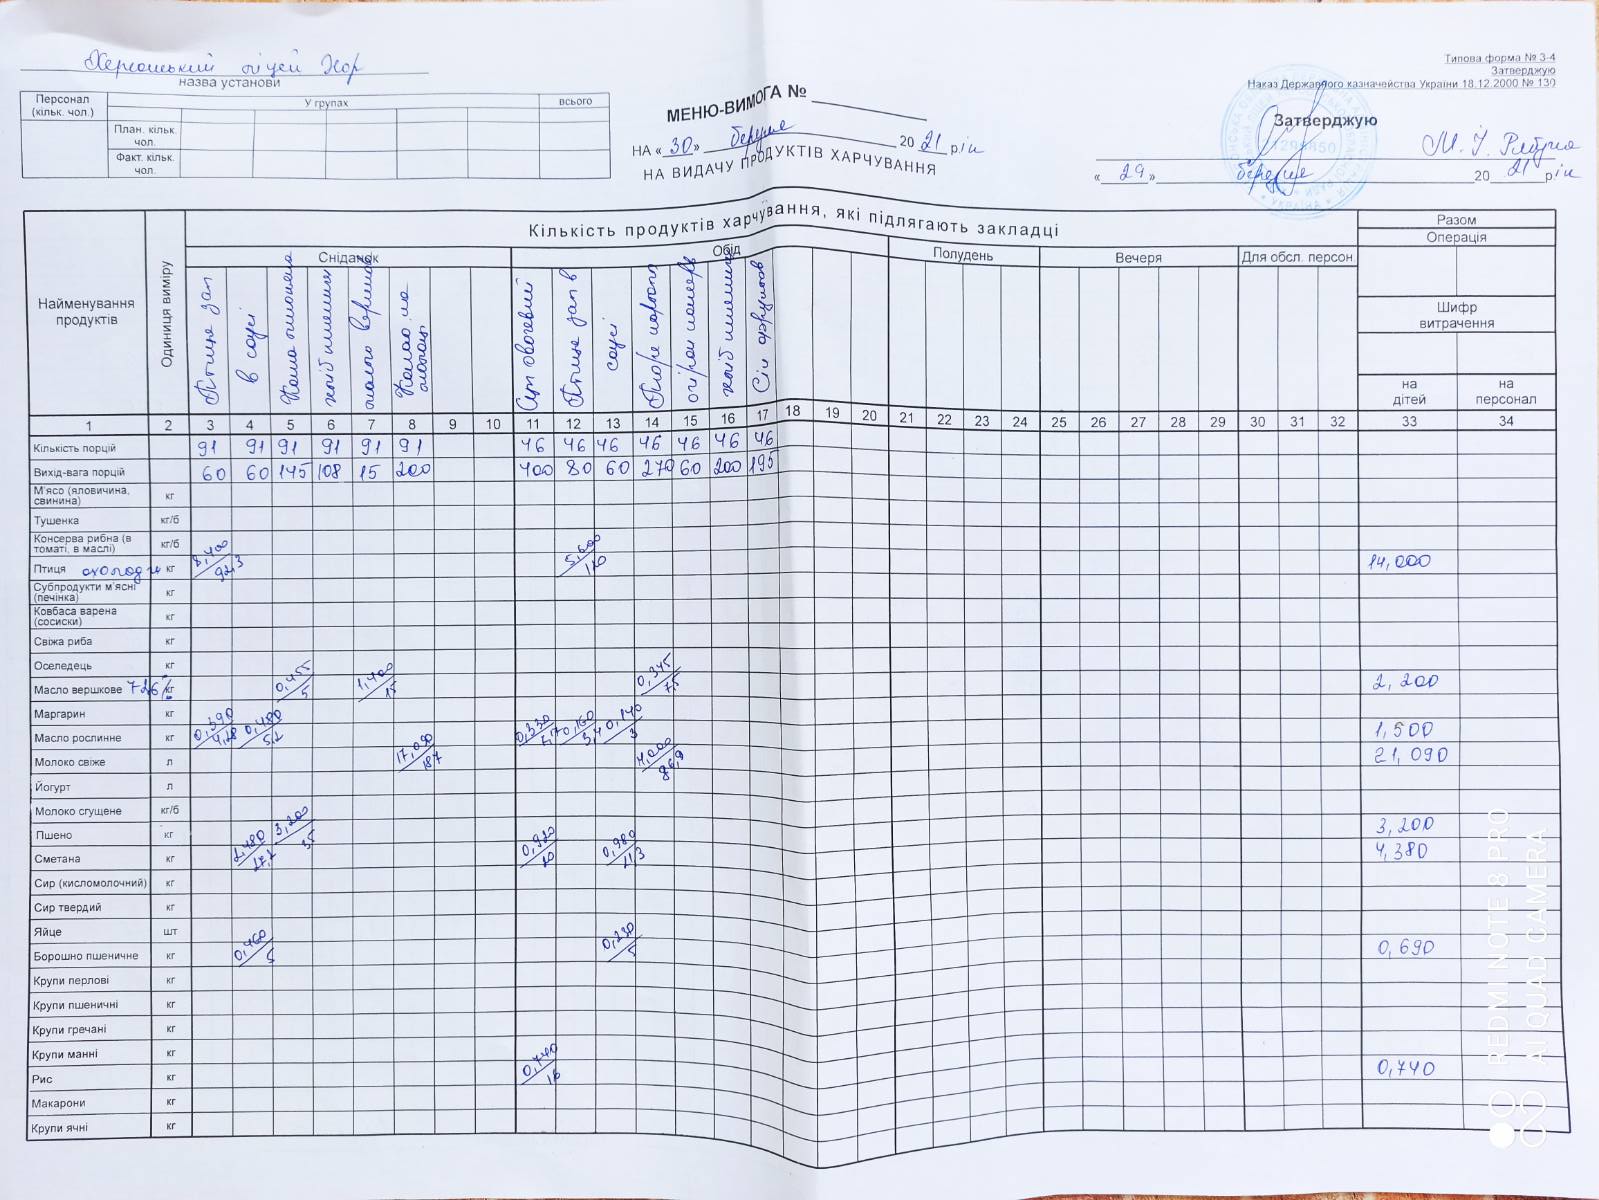 Херсонський ліцей ХОР
назва установи
Типова форма № З-4
Затверджую
Наказ Державного казначейства України 18.12.2000 № 130
Персонал (кільк. чол.) У групах всього
План. кільк. чол.
Факт. кільк. чол.
МЕНЮ-ВИМОГА №
НА «30» березня 2021 рік
НА ВИДАЧУ ПРОДУКТІВ ХАРЧУВАННЯ
Затверджую
М. І.
«29» березня 2021 рік
Найменування продуктів
Одиниця виміру
Кількість продуктів харчування, які підлягають закладці
Разом
Операція
Сніданок Обід Полудень Вечеря Для обсл. персон.
Шифр витрачення
на дітей на персонал
Птиця зап
в соусі
Каша пшоняна
хліб пшенич
масло вершков
Какао на молоці
Суп овочевий
Птиця зап в
соусі
Пюре картоп
хліб пшенич
Сік фруктов
1 2 3 4 5 6 7 8 9 10 11 12 13 14 15 16 17 18 19 20 21 22 23 24 25 26 27 28 29 30 31 32 33 34
Кількість порцій 91 91 91 91 91 91 46 46 46 46 46 46 46
Вихід-вага порцій 60 60 145 108 15 200 400 80 60 270 60 200 195
М'ясо (яловичина, свинина) кг
Тушенка кг/б
Консерва рибна (в томаті, в маслі) кг/б
Птиця охолодж кг 8,400/92,3 5,600/120 14,000
Субпродукти м'ясні (печінка) кг
Ковбаса варена (сосиски) кг
Свіжа риба кг
Оселедець кг
Масло вершкове кг 0,455/5 1,400/15 0,345/7,5 2,200
Маргарин кг
Масло рослинне кг 0,390/4,28 0,480/5,2 0,330 0,160/3,4 0,140/3 1,500
Молоко свіже л 17,090/187 4,000/86,9 21,090
Йогурт л
Молоко сгущене кг/б
Пшено кг 3,200/35 3,200
Сметана кг 2,480/27,2 0,920/20 0,980/21,3 4,380
Сир (кисломолочний) кг
Сир твердий кг
Яйце шт
Борошно пшеничне кг 0,460/5 0,230/5 0,690
Крупи перлові кг
Крупи пшеничні кг
Крупи гречані кг
Крупи манні кг
Рис кг 0,740/16 0,740
Макарони кг
Крупи ячні кг
REDMI NOTE 8 PRO
AI QUAD CAMERA